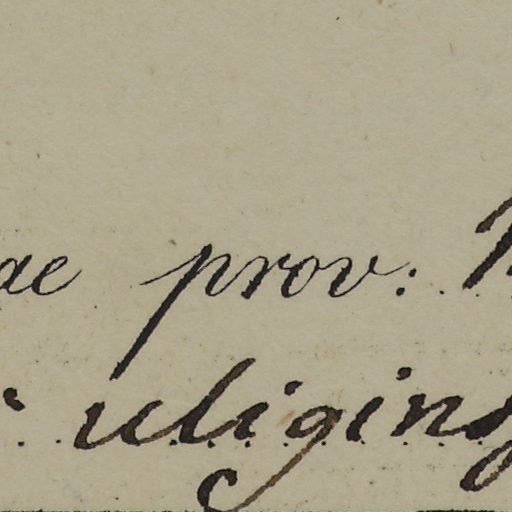 ae prov:
uligins